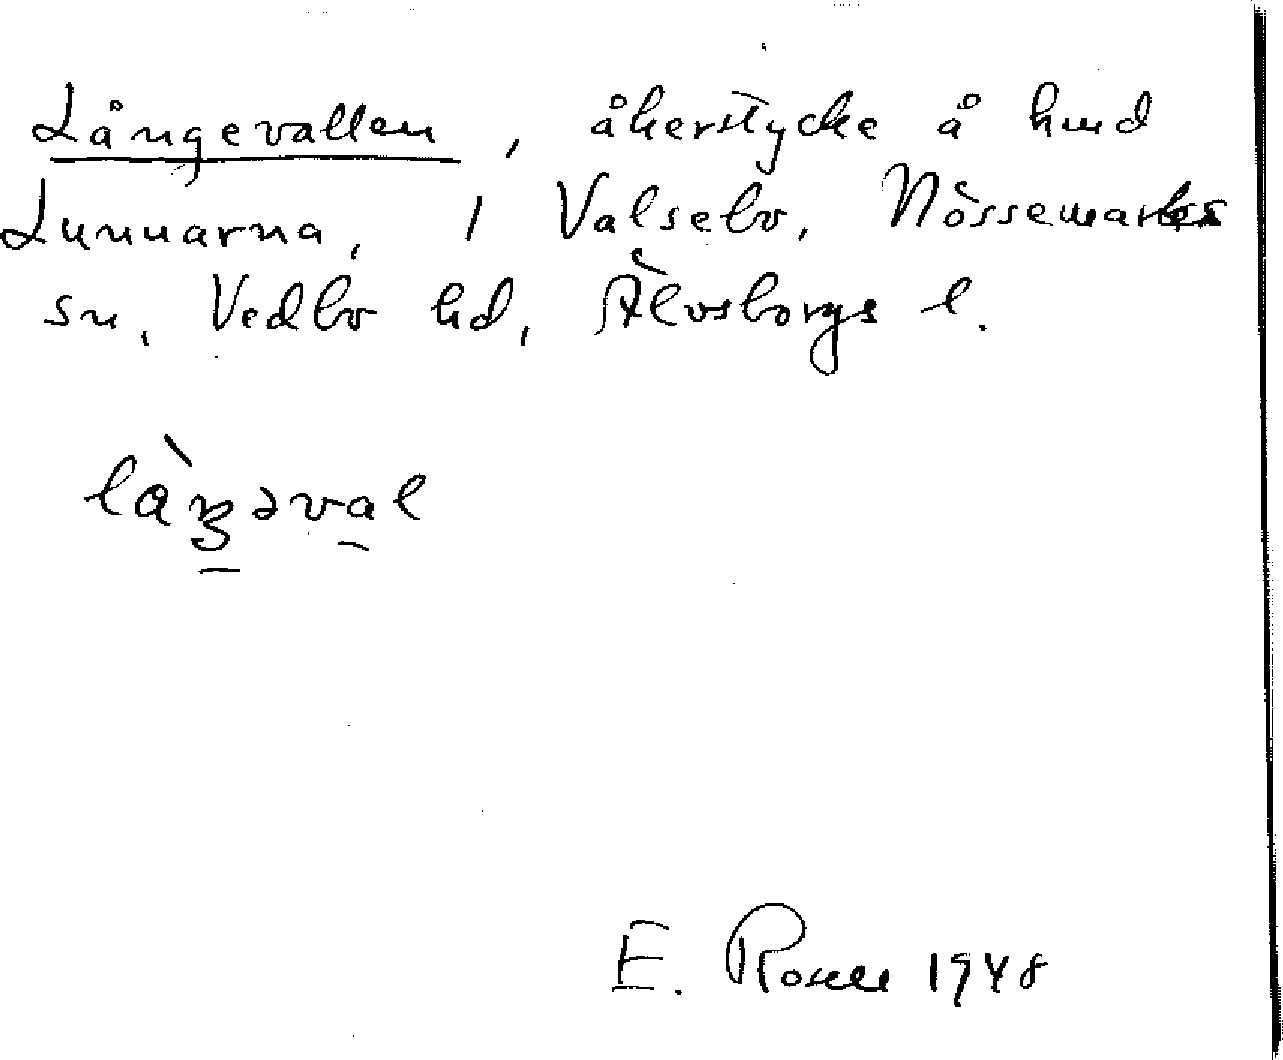 Långevallen, åkerstycke å hmd
Lunnarna, 1 Valsebo, Nössemarks
sn, Vedbo hd, Älvsborgs l.
E. Rosell 1948